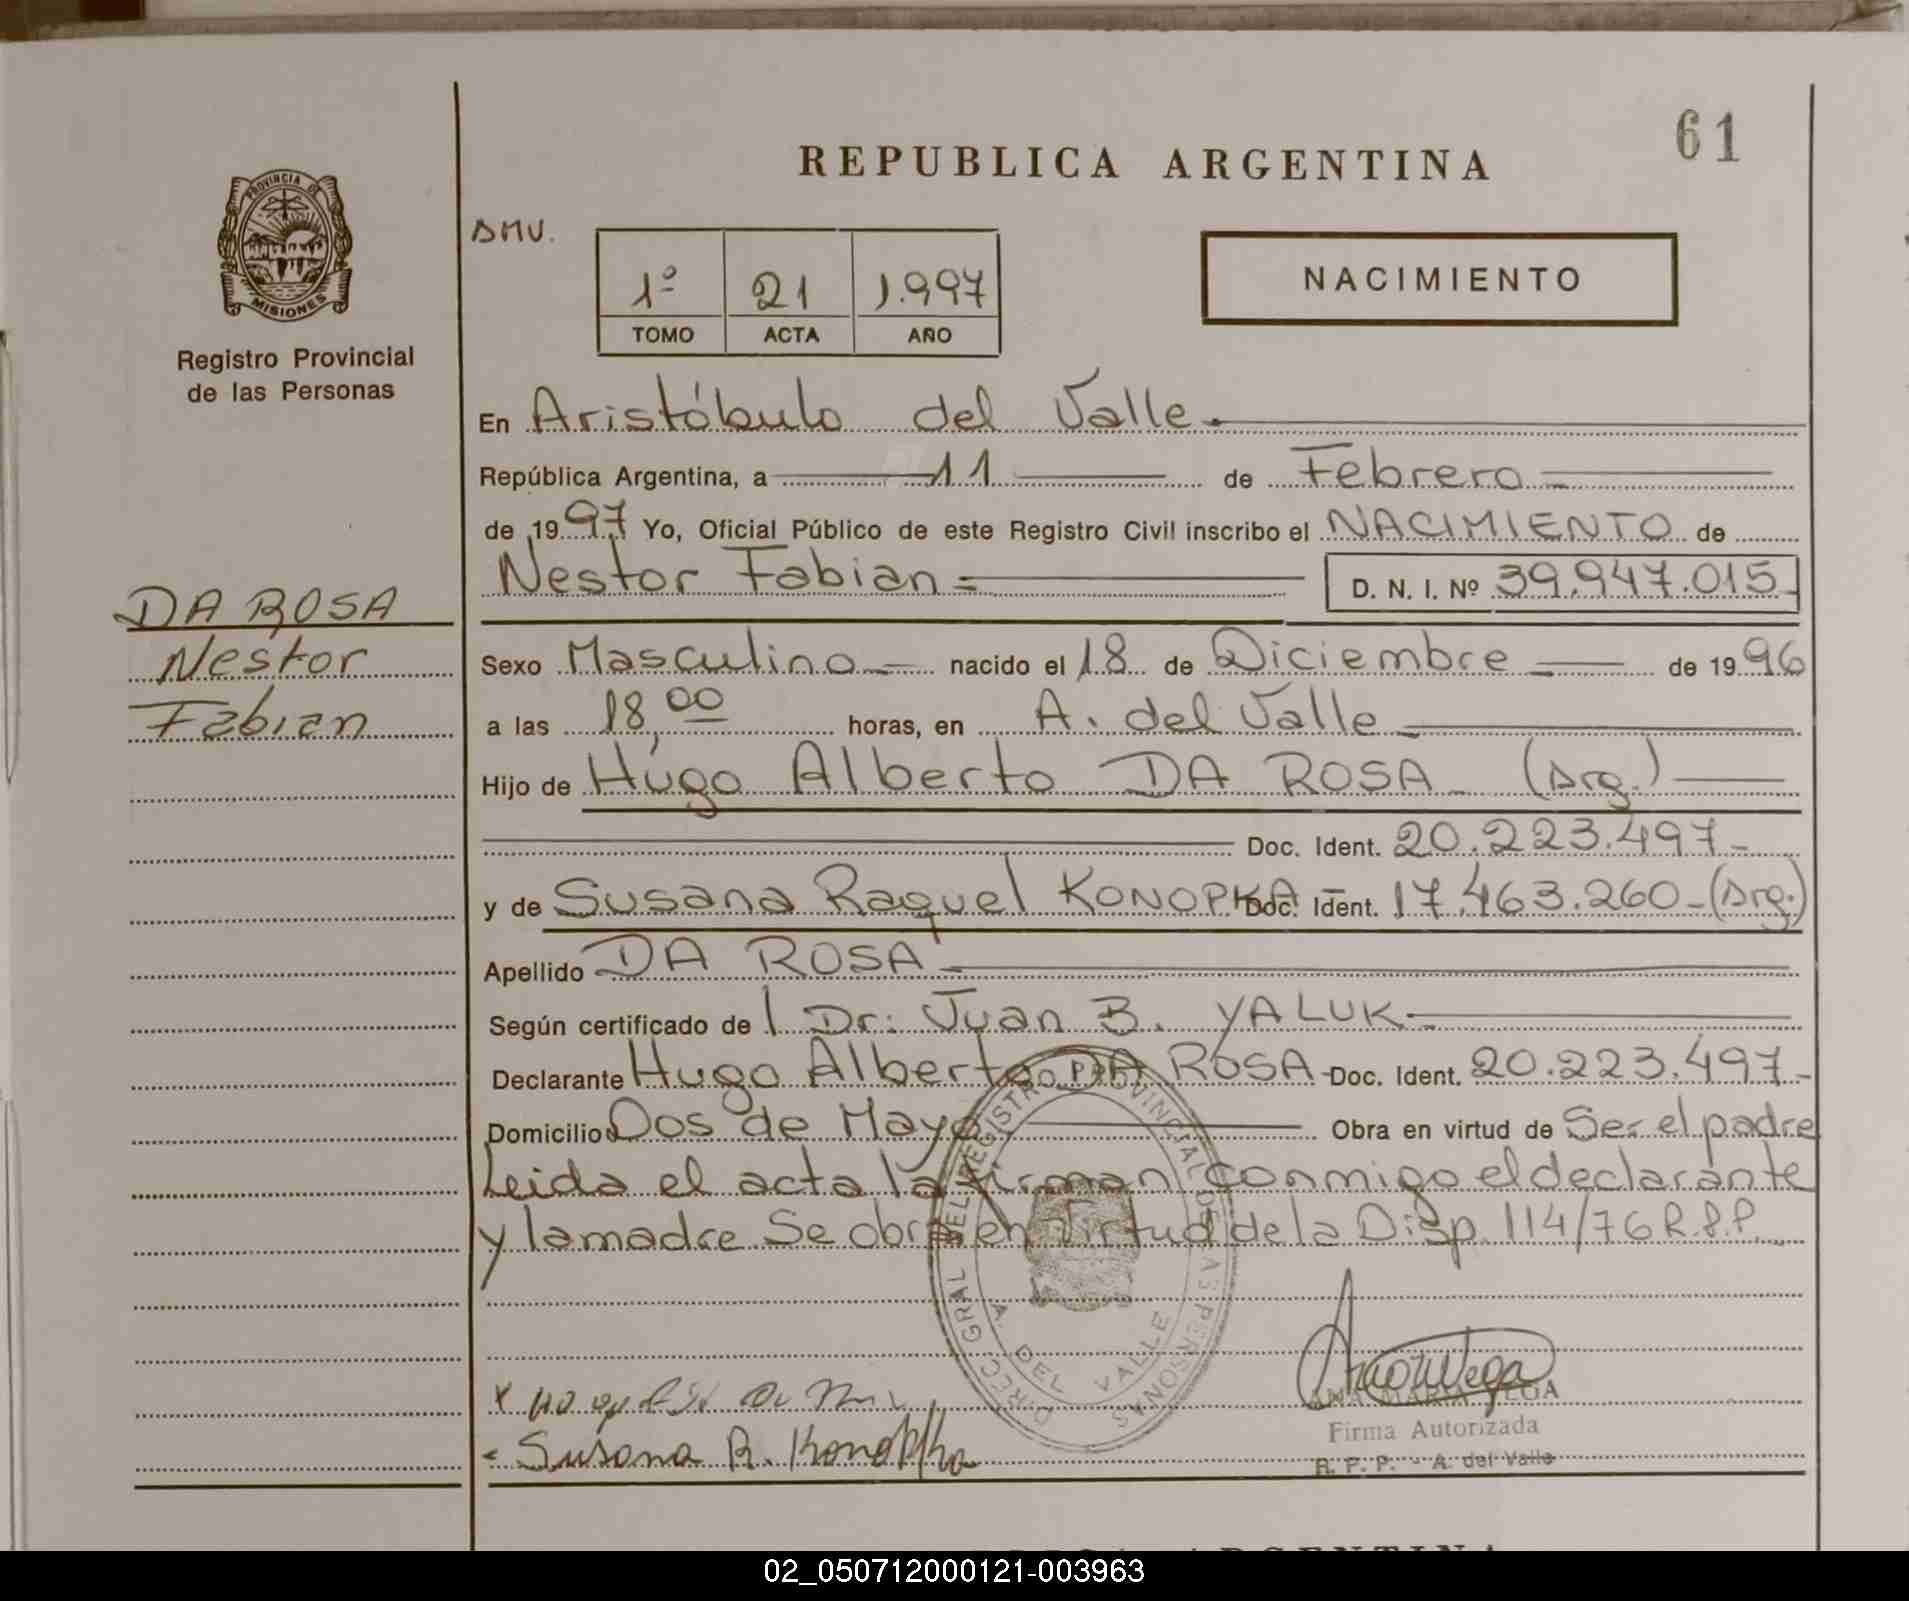 61
REPUBLICA ARGENTINA
PROVINCIA DE
MISIONES
Registro Provincial
de las Personas
DMV.
1º 21 1.997
TOMO ACTA AÑO
NACIMIENTO
En Aristóbulo del Valle.
República Argentina, a 11 de Febrero
de 1997 Yo, Oficial Público de este Registro Civil inscribo el NACIMIENTO de
Nestor Fabian = D. N. I. Nº 39.947.015
DA ROSA
Nestor
Fabian
Sexo Masculino nacido el 18 de Diciembre de 1996
a las 18,00 horas, en A. del Valle
Hijo de Hugo Alberto DA ROSA (Arg.)
Doc. Ident. 20.223.497
y de Susana Raquel KONOPKA Doc. Ident. 17.463.260 (Arg.)
Apellido DA ROSA
Según certificado de l Dr. Juan B. YALUK
Declarante Hugo Alberto DA ROSA Doc. Ident. 20.223.497
Domicilio Dos de Mayo Obra en virtud de Ser el padre
Leida el acta la firman conmigo el declarante
y la madre Se obra en virtud de la Disp. 114/76 R.P.P.
DIRECC GRAL DEL REGISTRO PROVINCIAL DE LAS PERSONAS
A. DEL VALLE
Susana R. Konopka
ANA MARIA VEGA
Firma Autorizada
R. P. P. - A. del Valle
REPUBLICA ARGENTINA
02_050712000121-003963